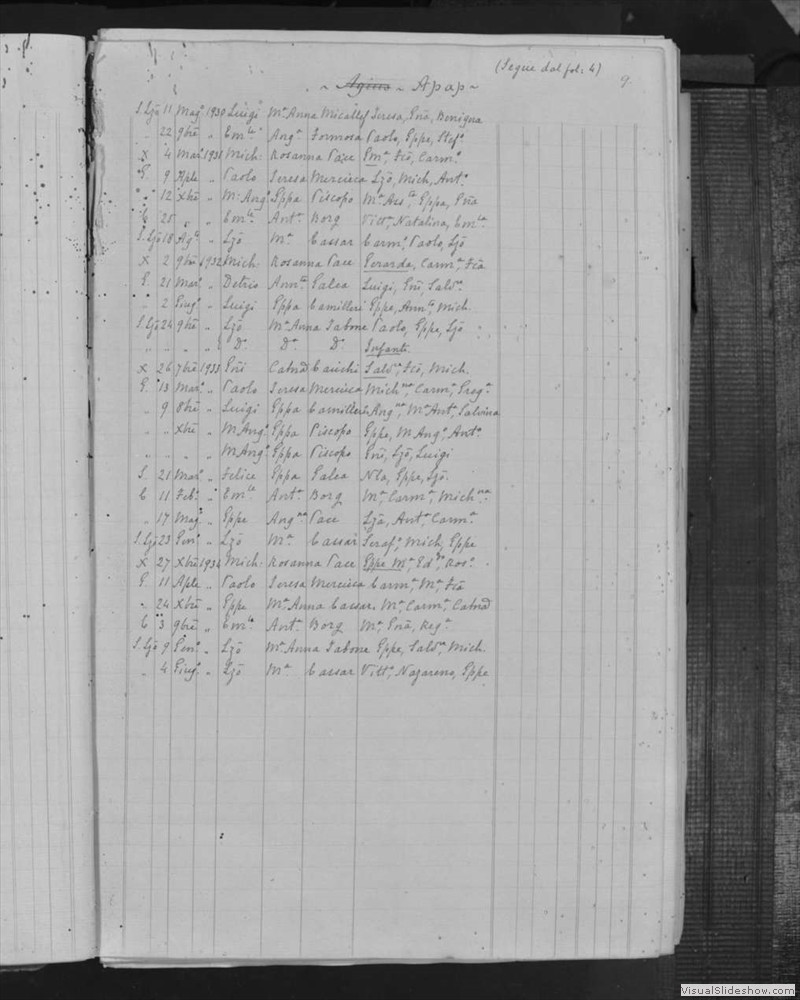 (Segue dal fol: 4)
9.
~ Agius ~ Apap ~
S. Ljō 11 Magº 1930 Luigi Mª Anna Micallef Teresa, Enā, Benigna
" 22 9bre " Emle Angª Formosa Paolo, Eppe, Stefº
X 4 Marº 1931 Mich: Rosanna Pace Emª, Fcō, Carmª
G. 9 Aple " Paolo Teresa Mercieca Ljō, Mich, Antº
" 12 Xbre " M. Angº Eppa Piscopo Mª Assta, Eppa, Enā
C 20 " " Emle Antª Borg Vittª, Natalina, Emla
S. Ljō 18 Agº " Ljō Mª Cassar Carmº, Paolo, Ljō
X 2 9bre 1932 Mich: Rosanna Pace Gerarda, Carmª, Fcā
G. 21 Marº " Annta Galea Luigi, Enī, Salvº
" 2 Giugº " Luigi Eppa Camilleri Eppe, Annto, Mich.
S. Ljō 24 9bre " Ljō Mª Anna Tabone Paolo, Eppe, Ljō
" " " " Dº Dº Dº Infante
X 26 7bre 1933 Enī Catnā Salvº, Fcō, Mich.
G. 13 Marº " Paolo Teresa Mercieca Michna, Carmª, Gregª
" 9 8bre " Luigi Eppa Camilleri Angna, Mª Antª
" " Xbre " M. Angº Eppa Piscopo Eppe, M. Angº, Antº
" " " " M. Angº Eppa Piscopo Enī, Ljō, Luigi
S. 21 Marº " Felice Eppa Galea Nla, Eppe, Ljō
C 11 Febº " Emle Antª Borg Mª, Carmª, Michna
" 17 Magº " Eppe Angna Pace Ljā, Antª, Carmª
S. Ljō 23 Genº " Ljō Mª Cassar Serafº, Mich, Eppe
X 27 Xbre 1934 Mich: Rosanna Pace Eppe Mª, Eddo, Rosº
G. 11 Aple " Paolo Teresa Mercieca Carmª, Mª, Fcā
" 24 Xbre " Eppe Mª Anna Cassar Mª, Carmª, Catnā
C 3 9bre " Emle Antª Borg Mª, Enā, Regª
S. Ljō 9 Genº " Ljō Mª Anna Tabone Eppe, Salvº, Mich.
" 4 Giugº " Ljō Mª Cassar Vittº, Nazareno, Eppe
VisualSlideshow.com